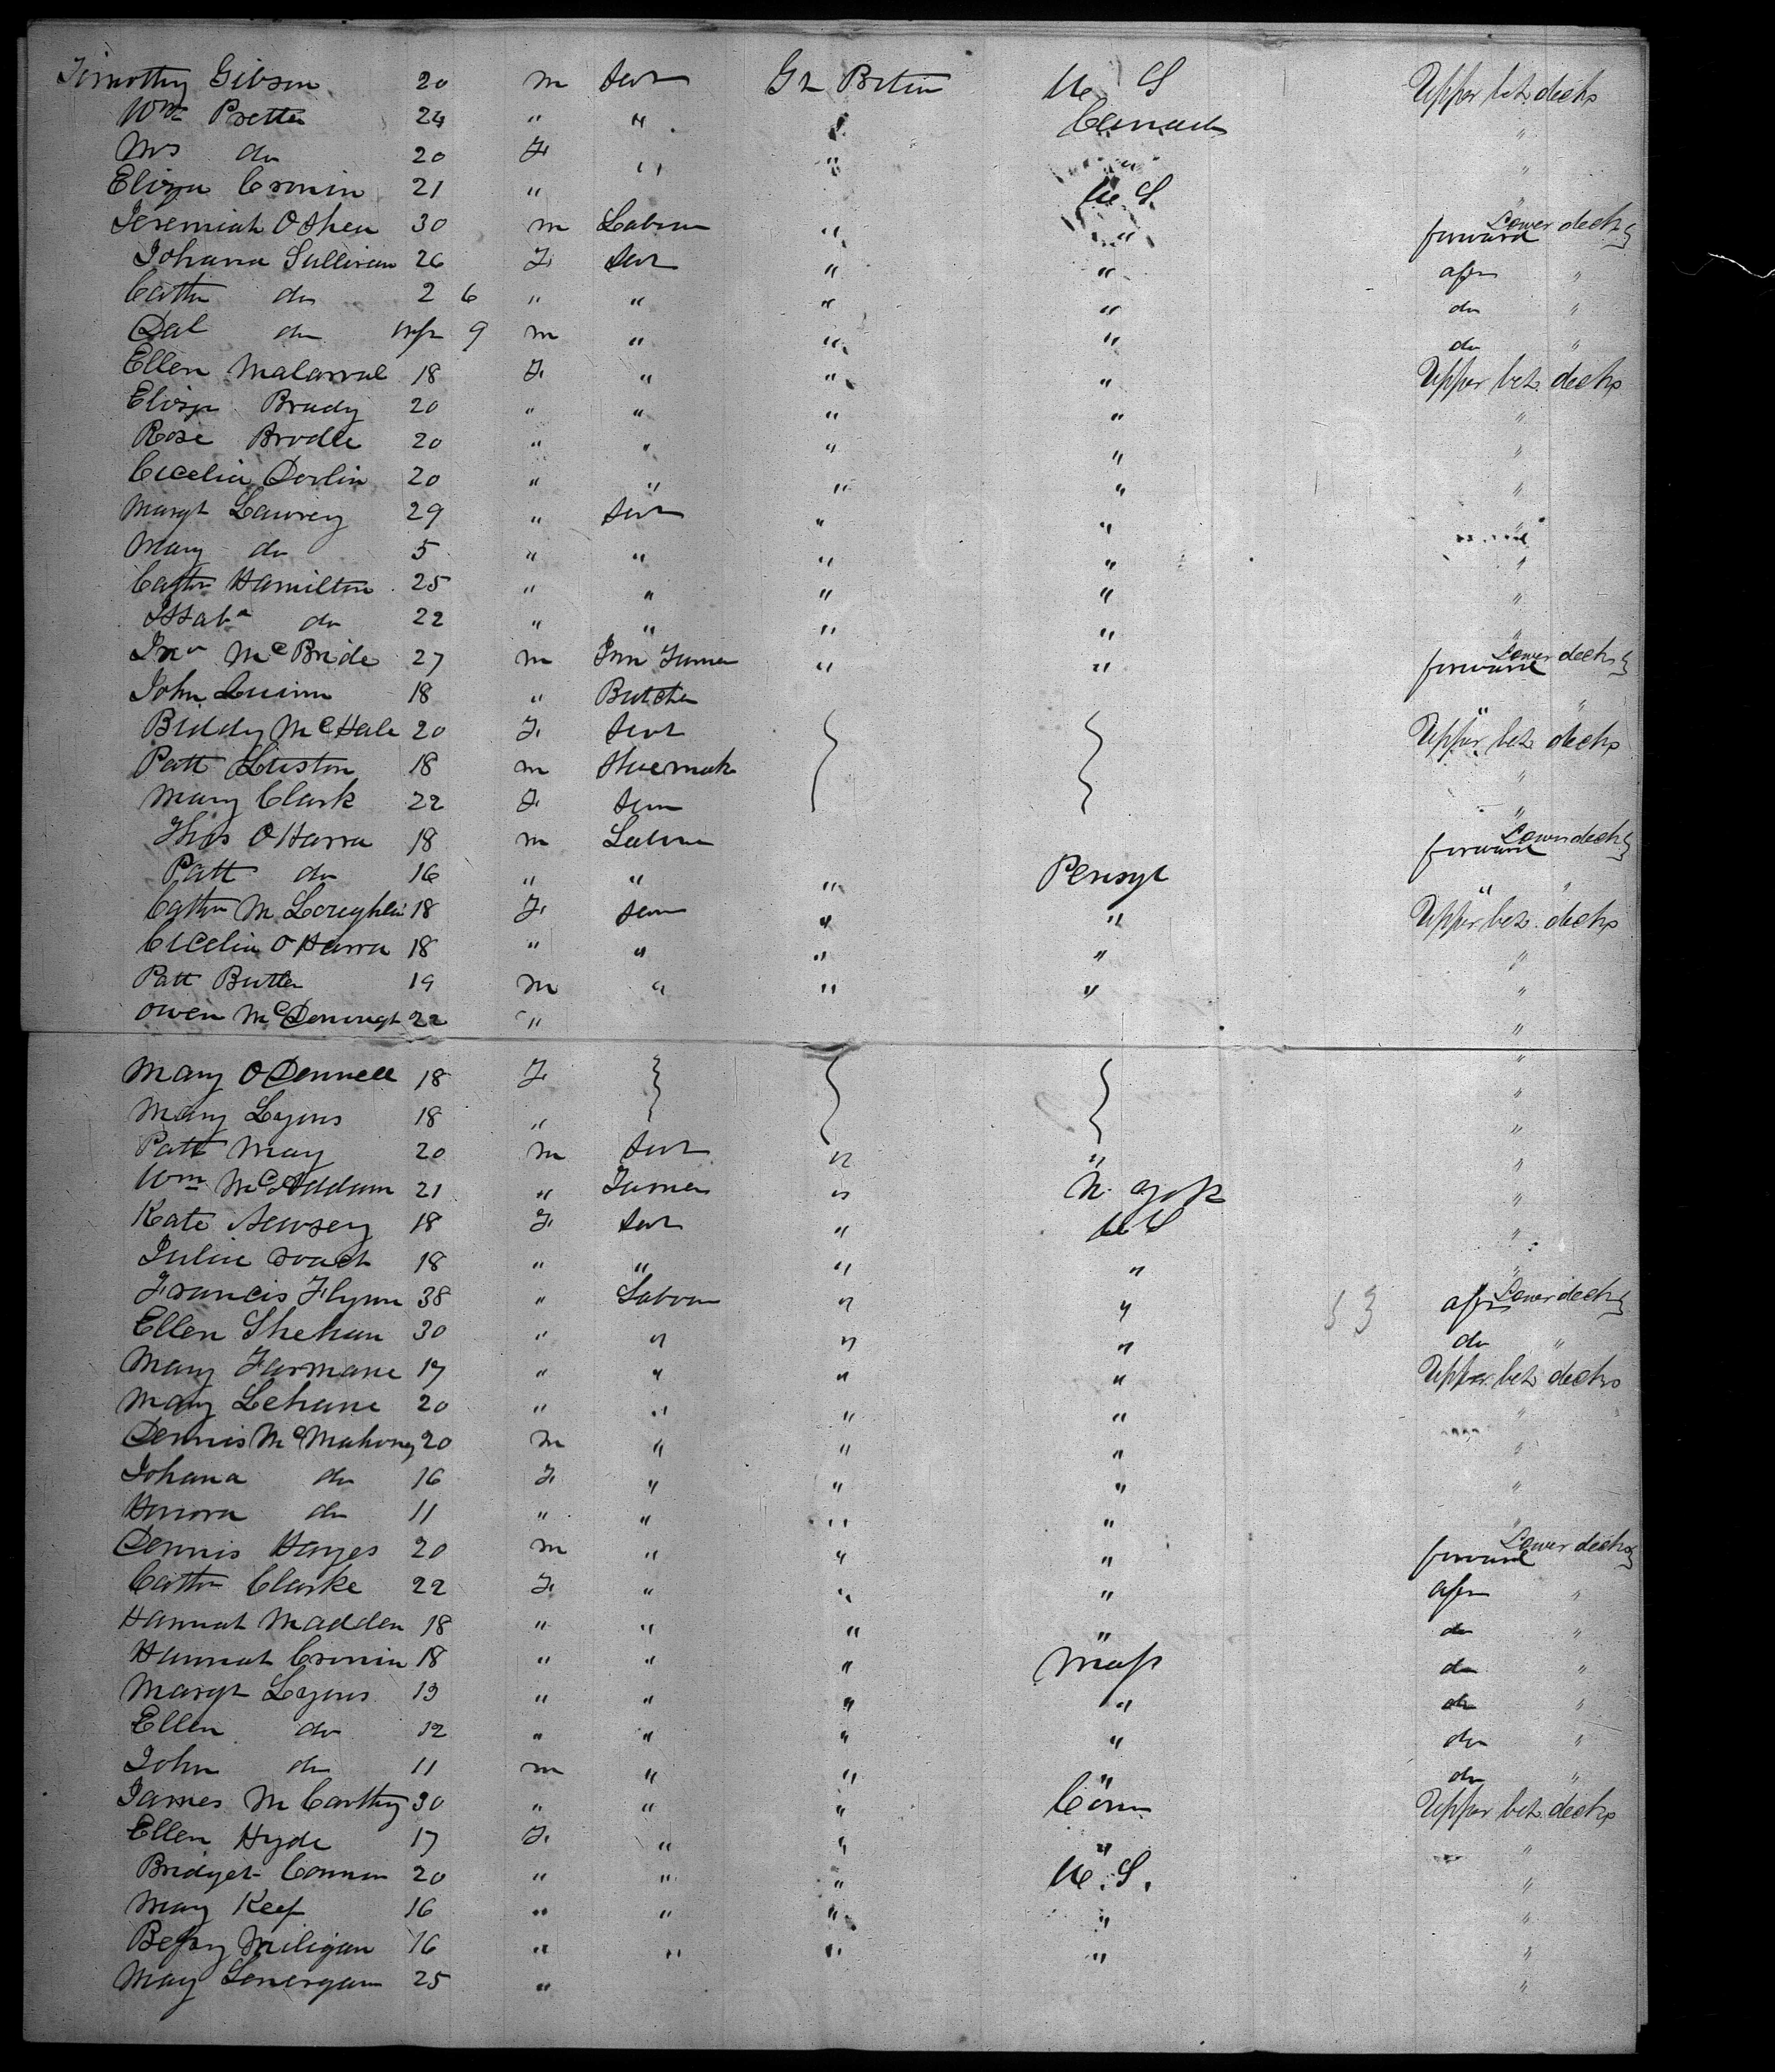 Timothy Gibson 20 m Servt Gt Britin U S Upper bet decks
Wm Pretter 24 " " " Canada "
Mrs do 20 F " " " "
Eliza Cronin 21 " U S. "
Jeremiah O Shea 30 m Labour " " forward Lower decks }
Johana Sullivan 26 F Servt " " aft "
Cathn do 2 6 " " " " do "
Dal do inft 9 m " " " do "
Ellen 18 F " " " Upper bet decks
Eliza Brady 20 " " " " "
Rose Brodle 20 " " " " "
Cicelia Devlin 20 " " " " "
Margt Lawrey 29 " Servt " " "
Mary do 5 " " " " "
Cathn Hamilton 25 " " " " "
Issaba do 22 " " " " "
Jno McBride 27 m Inn " " forward Lower decks }
John Quinn 18 " Butcher " "
Biddy McHale 20 F Servt Upper bet decks
Patt Liston 18 m Shoemak "
Mary Clark 22 F Serv "
Thos O Harra 18 m Labour forward Lower decks }
Patt do 16 " " " Pensyl " "
Cathn McLoughlin 18 F Serv " " Upper bet decks
Cicelia O Harra 18 " " " " "
Patt Butler 19 m " " " "
Owen McDonnugh 22 " "
Mary O Donnell 18 F "
Mary Lyons 18 " "
Patt May 20 m Servt " " "
Wm McAddam 21 " Farmer " N. York "
Kate 18 F Servt " U S "
Julia roach 18 " " " " "
Francis Flynn 38 " Labour " " aft Lower decks }
53
Ellen Shehan 30 " " " " do "
Mary Farmane 17 " " " " Upper bet decks
Mary Lehane 20 " " " " "
Dennis McMahony 20 m " " " "
Johana do 16 F " " " "
Honora do 11 " " " " "
Dennis Hayes 20 m " " " forward Lower decks }
Cathn Clarke 22 F " " " aft "
Hannah Madden 18 " " " " do "
Hannah Cronin 18 " " " Mass do "
Margt Lyons 13 " " " " do "
Ellen do 12 " " " " do "
John do 11 m " " " do "
James McCarthy 30 " " " Conn Upper bet decks
Ellen Hyde 17 F " " " "
Bridget Connon 20 " " " U. S. "
Mary Keef 16 " " " " "
Bessy Miligan 16 " " " " "
Mary Lonergan 25 " "